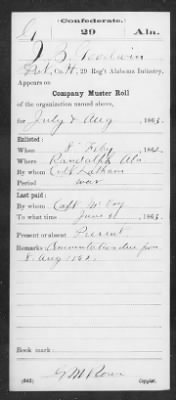 Confederate.
G 29 Ala.
J. B. Goodwin
Co. H, 29 Reg't Alabama Infantry.
Appears on
Company Muster Roll
of the organization named above,
for July & Aug, 1863.
Enlisted:
When 8 Feby, 1862.
Where Randolph Ala
By whom Latham
Period war
Last paid:
By whom Capt McCoy
To what time June 30, 1863.
Present or absent Present
Remarks: Commutation due from
8 Aug 1862.
Book mark:
G M Rowe
(642) Copyist.